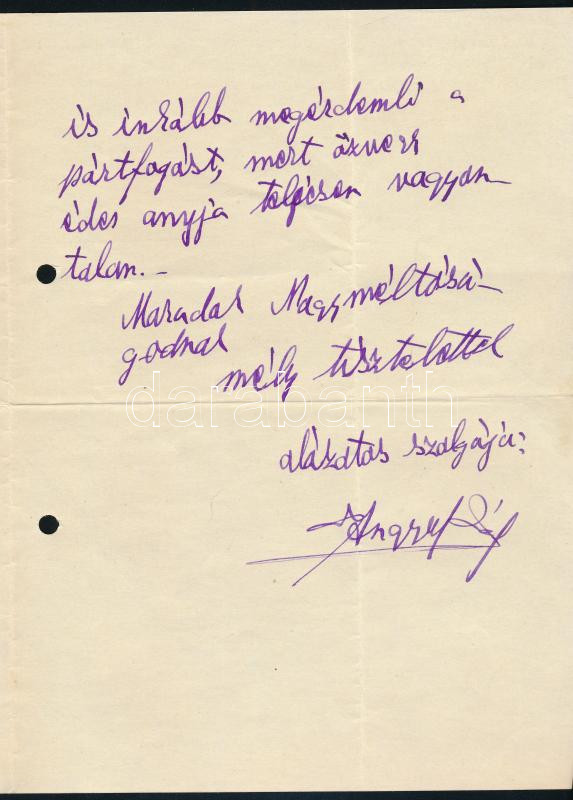 is inkább megérdemli a
pártfogást, mert özvegy
édes anyja teljesen vagyon-
talan. –
Maradok Nagyméltósá-
godnak
mély tisztelettel
darabanth
alázatos szolgája: